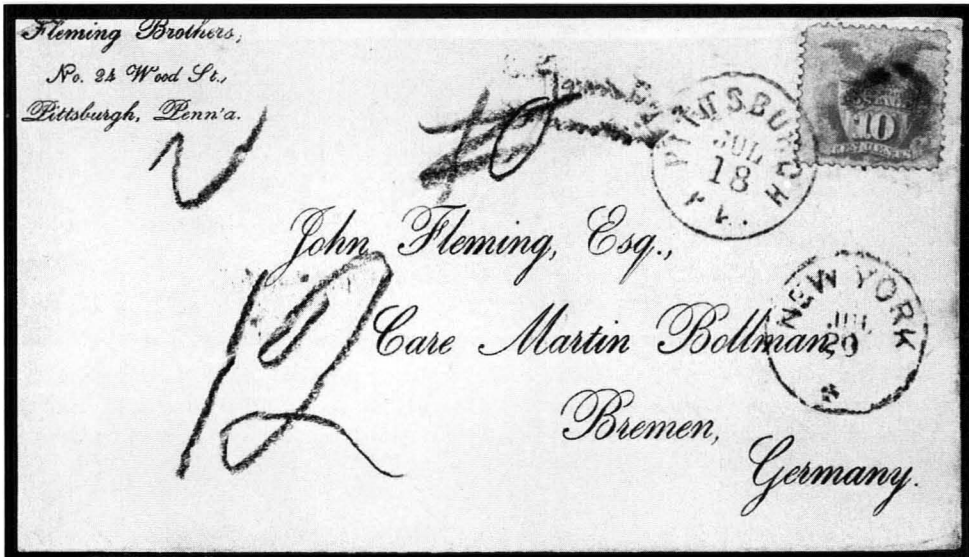 Fleming Brothers,
No. 24 Wood St.,
Pittsburgh, Penn'a.
PITTSBURGH
JUL
18
PA.
10
John Fleming, Esq.,
Care Martin Bollman,
Bremen,
Germany.
NEW YORK
JUL
20
12